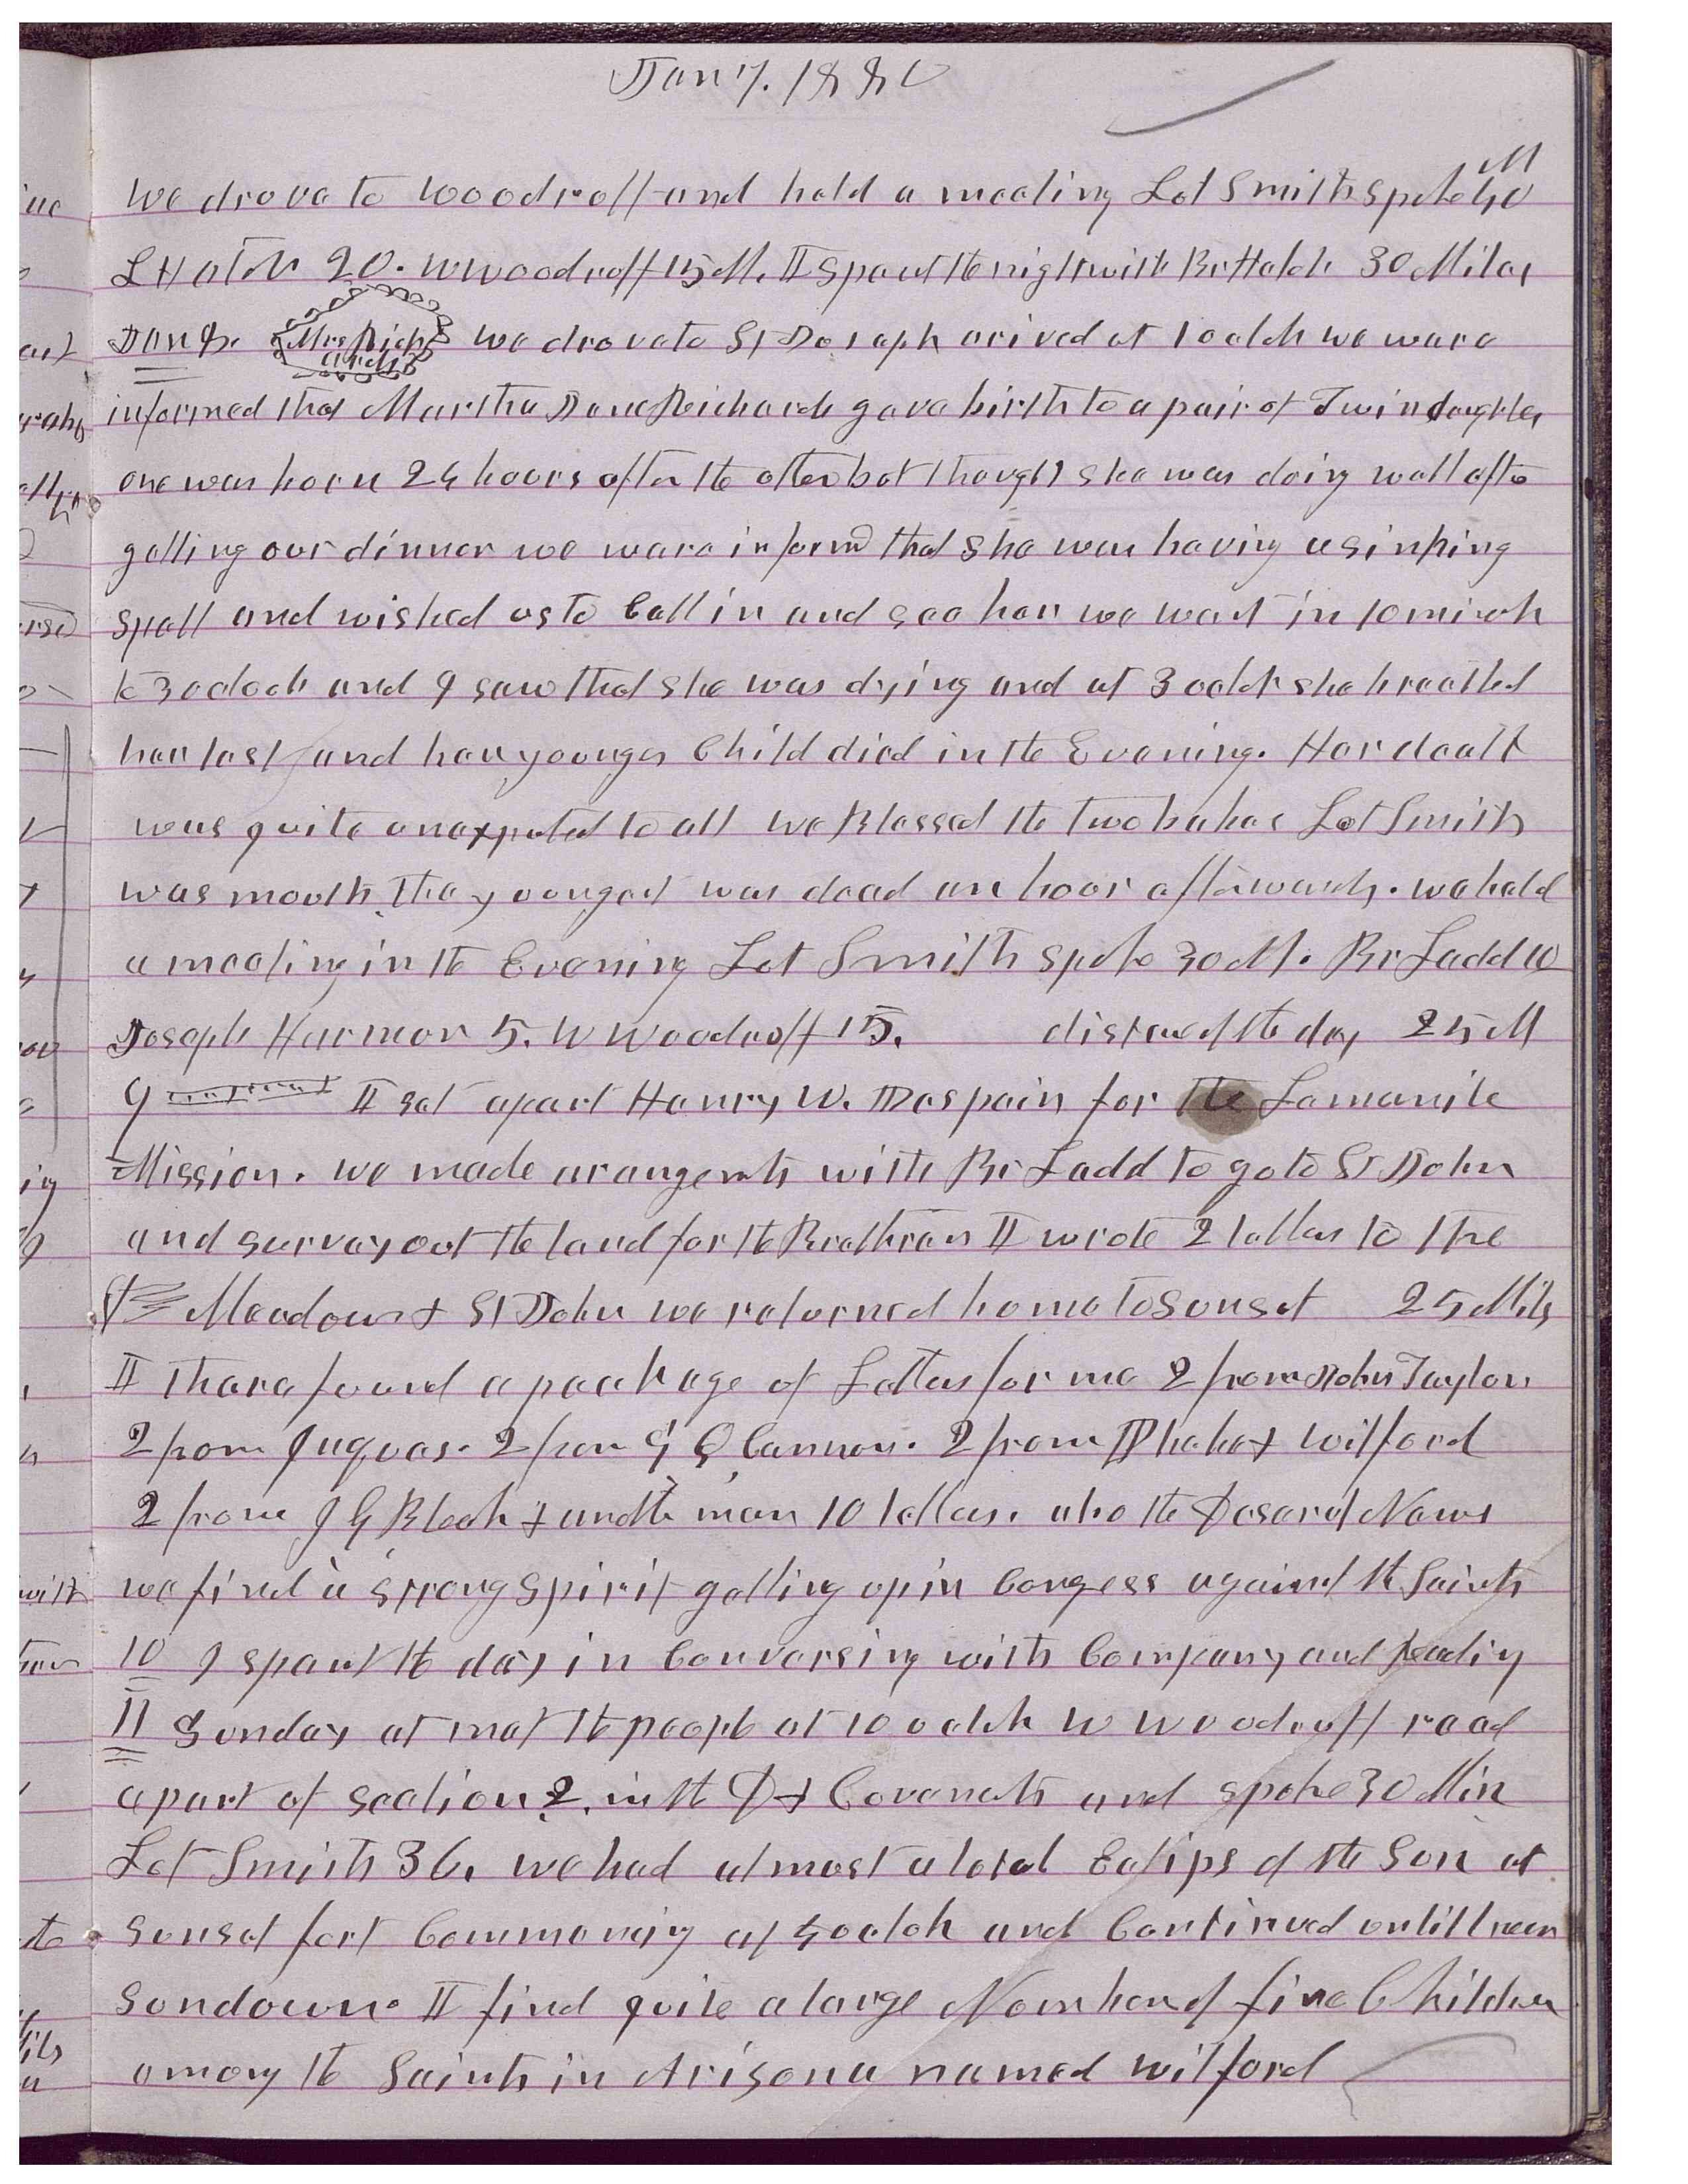 Jan 7. 1880
We drove to Woodruff and held a meeting Lot Smith spoke 40 M
L Hatch 20. W Woodruff 15 M. I spent the night with Br Hatch 30 Miles
Jan 8. Mrs Richards we drove to St Joseph arived at 1 oclok we were
informed that Martha Jane Richards gave birth to a pair of Twin daughters
one was born 24 hours after the other but thought she was doing well after
getting our dinner we were informd that she was having a sinking
spell and wished us to Call in and see her we went in 10 minuts
to 3 oclock and I saw that she was dying and at 3 oclok she breathed
her last and her younger Child died in the Evening. Her death
was quite unexpected to all we Blessed the two babes Lot Smith
was mouth the youngest was dead an hour afterwards. we held
a meeting in the Evening Lot Smith spoke 30 M. Br Ladd 10
Joseph Harmon 5. W Woodruff 15. distance of the day 25 M
9 I set apart Henry W. Despain for the Lamanite
Mission. we made arangemts with Br Ladd to go to St John
and survey out the land for the Brethren I wrote 2 letters to the
Meadows & St John we returned home to Sunset 25 Miles
I there found a paakage of Letters for me 2 from John Taylor
2 from Jaques. 2 from G Q Cannon. 2 from Phebe & Wilford
2 from J G Bleak & and the man 10 letters. also the Deseret News
we find a strong spirit getting up in Congess against the Saints
10 I spent the day in Conversing with Company and reading
11 Sunday at met the people at 10 oclok W Woodruff read
a part of section 2. in the D & Covenants and spoke 30 Min
Lot Smith 36. we had almost a total Eclips of the Sun at
Sunset fort Commencing at 4 oclok and Continued untill near
Sundown. I find quite a large Number of fine Children
among the Saints in Arisona named Wilford